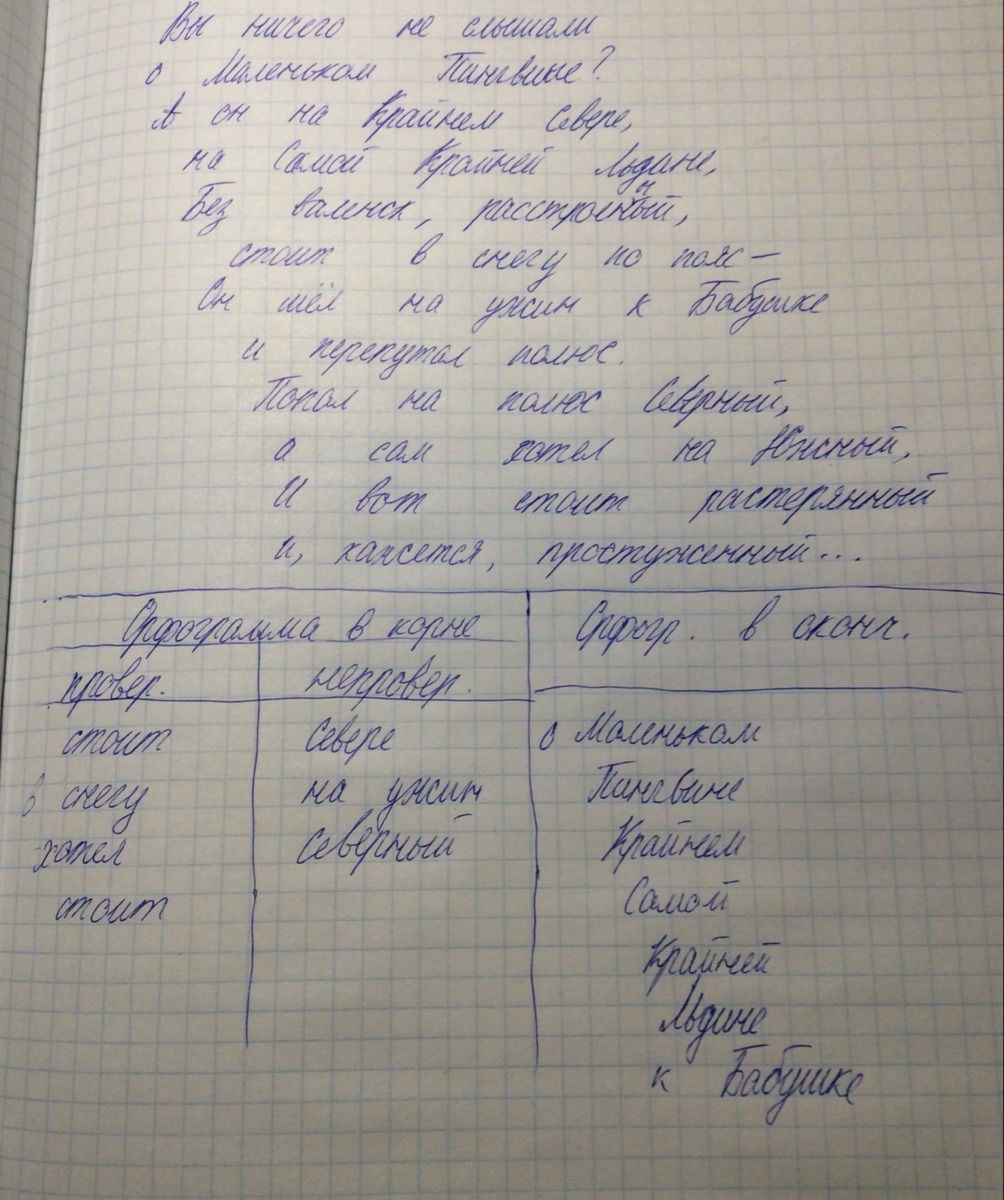 Вы ничего не слышали
о Маленьком Пингвине?
А он на Крайнем Севере,
на Самой Крайней Льдине,
Без валенок, расстроенный,
стоит в снегу по пояс –
Он шёл на ужин к Бабушке
и перепутал полюс.
Попал на полюс Северный,
а сам хотел на Южный,
И вот стоит растерянный
и, кажется, простуженный...
Орфограмма в корне
Орфогр. в оконч.
провер. непровер.
стоит Севере о Маленьком
в снегу на ужин Пингвине
хотел Северный Крайнем
стоит Самой
Крайней
Льдине
к Бабушке